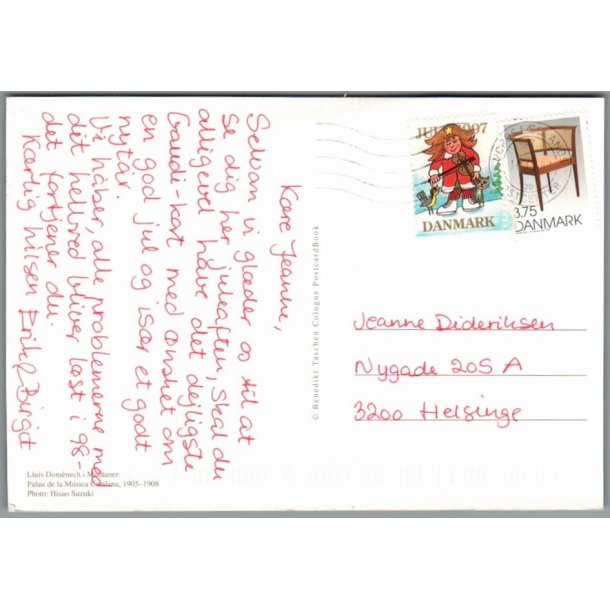 Kære Jeanne,
Selvom vi glæder os til at
se dig her juleaften, skal du
alligevel have det dejligste
Gaudi-kort med ønsket om
en god jul og især et godt
nytår.
Vi håber, alle problemerne med
dit helbred bliver løst i 98 -
det fortjener du.
Kærlig hilsen Erik & Birgit
Lluís Domènech i Montaner:
Palau de la Música Catalana, 1905–1908
Photo: Hisao Suzuki
© Benedikt Taschen Cologne PostcardBook
DANMARK
3.75
DANMARK
Jeanne Dideriksen
Nygade 205 A
3200 Helsinge